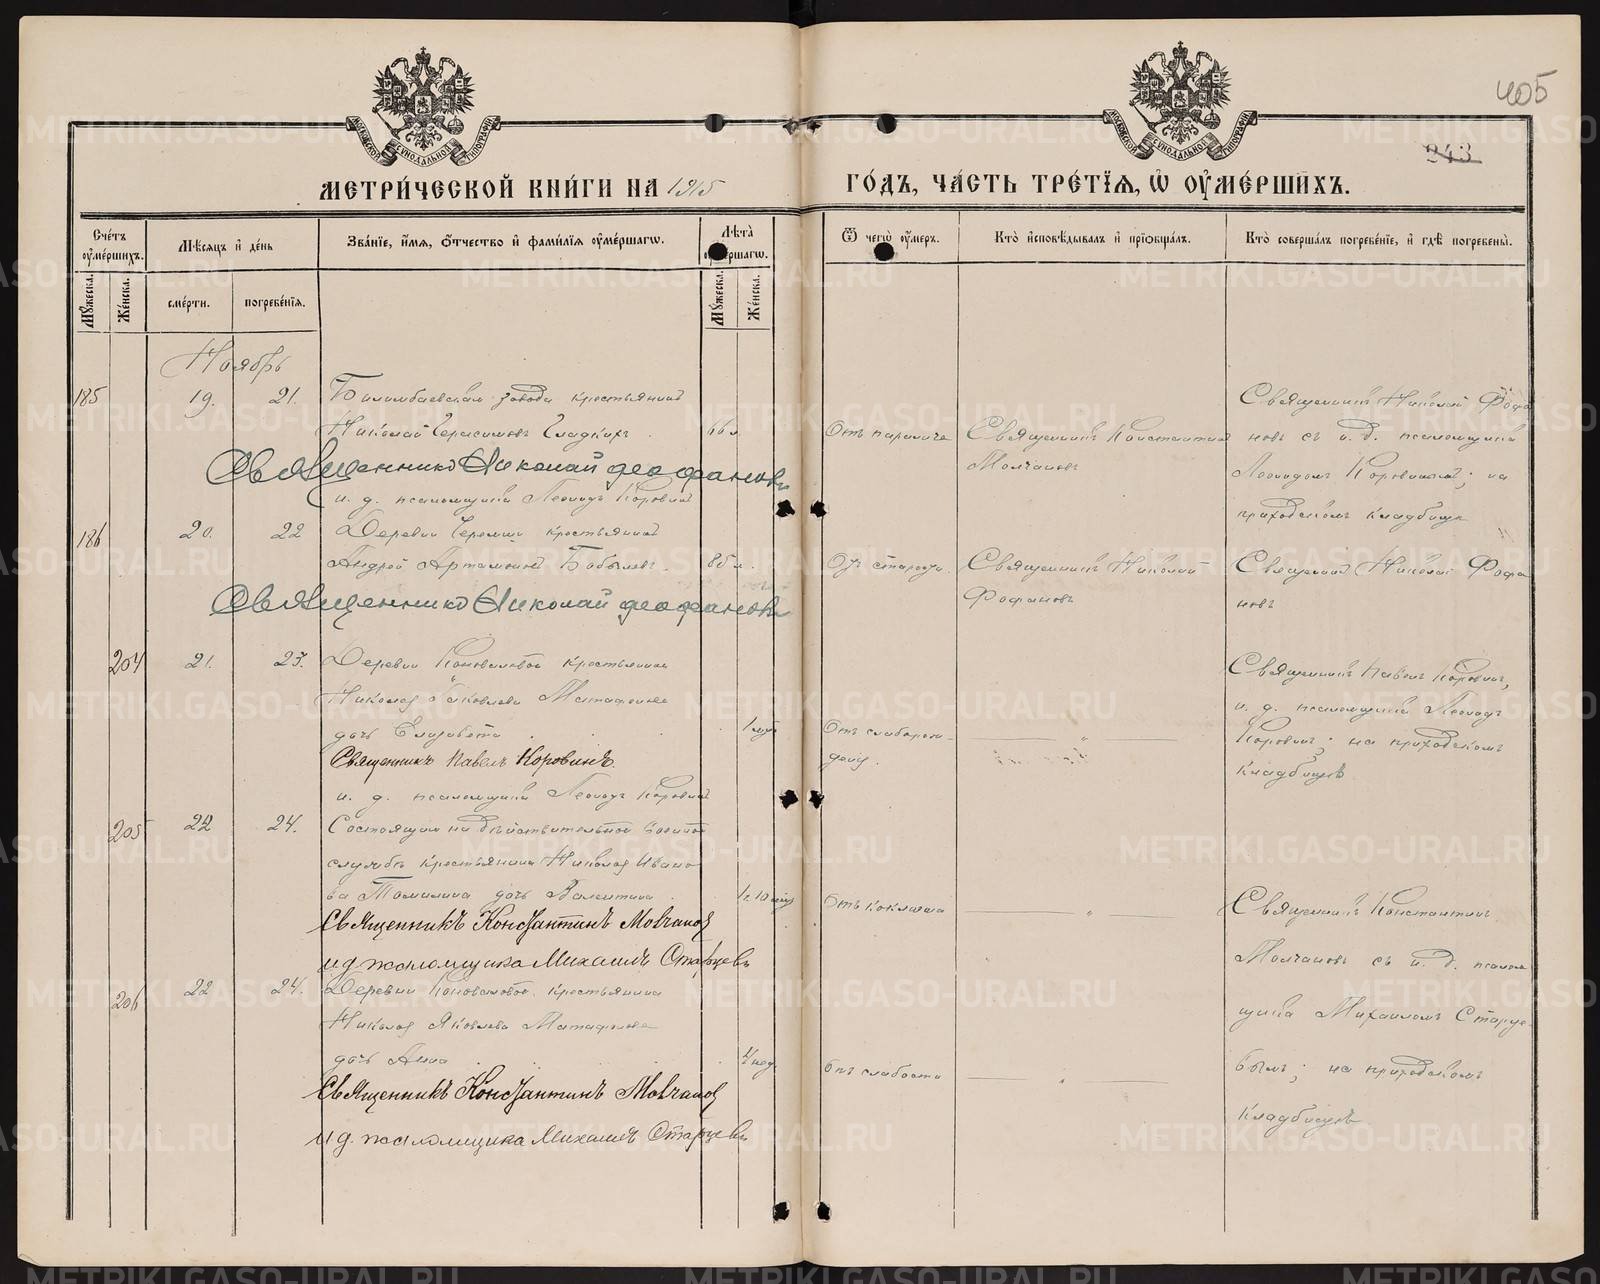 405
243
МЕТРИЧЕСКОЙ КНИГИ НА 1915
ГОДЪ, ЧАСТЬ ТРЕТІЯ, Ѡ ОУМЕРШИХЪ.
Счетъ оумершихъ.
Мѣсяцъ и день
Званіе, имя, отчество и фамилія оумершагѡ.
Лѣта оумершагѡ.
Ѿ чегѡ оумеръ.
Кто исповѣдывалъ и пріобщалъ.
Кто совершалъ погребеніе, и гдѣ погребены.
Мужеска.
Женска.
смерти.
погребенія.
Мужеска.
Женска.
Ноябрь
185
19.
21.
Билимбаевскаго завода крестьянинъ
Николай Герасимовъ Гладкихъ
66 л.
Отъ паралича
Священникъ Константинъ
Молчановъ
Священникъ Николай Фофа
новъ съ и. д. псаломщика
Леонидомъ Коровинымъ; на
приходскомъ кладбище
Священникъ Николай Феофановъ
и. д. псаломщика Леонидъ Коровинъ
186
20.
22
Деревни Черемши крестьянинъ
Андрей Артамоновъ Бабылевъ
85 л.
Отъ старости.
Священникъ Николай
Фофановъ
Священникъ Николай Фофа
новъ
Священникъ Николай Феофановъ
204
21.
23.
Деревни Коноваловой крестьянина
Николая Яковлева Матафонова
дочь Елизавета
Отъ слаборож-
дения.
"
Священникъ Павелъ Коровинъ,
и. д. псаломщика Леонидъ
Коровинъ; на приходскомъ
кладбищѣ
Священникъ Павелъ Коровинъ
и. д. псаломщика Леонидъ Коровинъ
205
22
24.
Состоящаго на дѣйствительной военной
службѣ крестьянина Николая Ивано
ва Томилина дочь Валентина
Отъ коклюша
"
Священникъ Константинъ
Молчановъ съ и. д. псалом
щика Михаиломъ Старце-
вымъ; на приходскомъ
кладбищѣ
Священникъ Константинъ Молчановъ
и д псаломщика Михаилъ Старцевъ
206
22
24.
Деревни Коноваловой крестьянина
Николая Яковлева Матафонова
дочь Анна
4 нед.
Отъ слабости
"
Священникъ Константинъ Молчановъ
и д псаломщика Михаилъ Старцевъ
METRIKI.GASO-URAL.RU